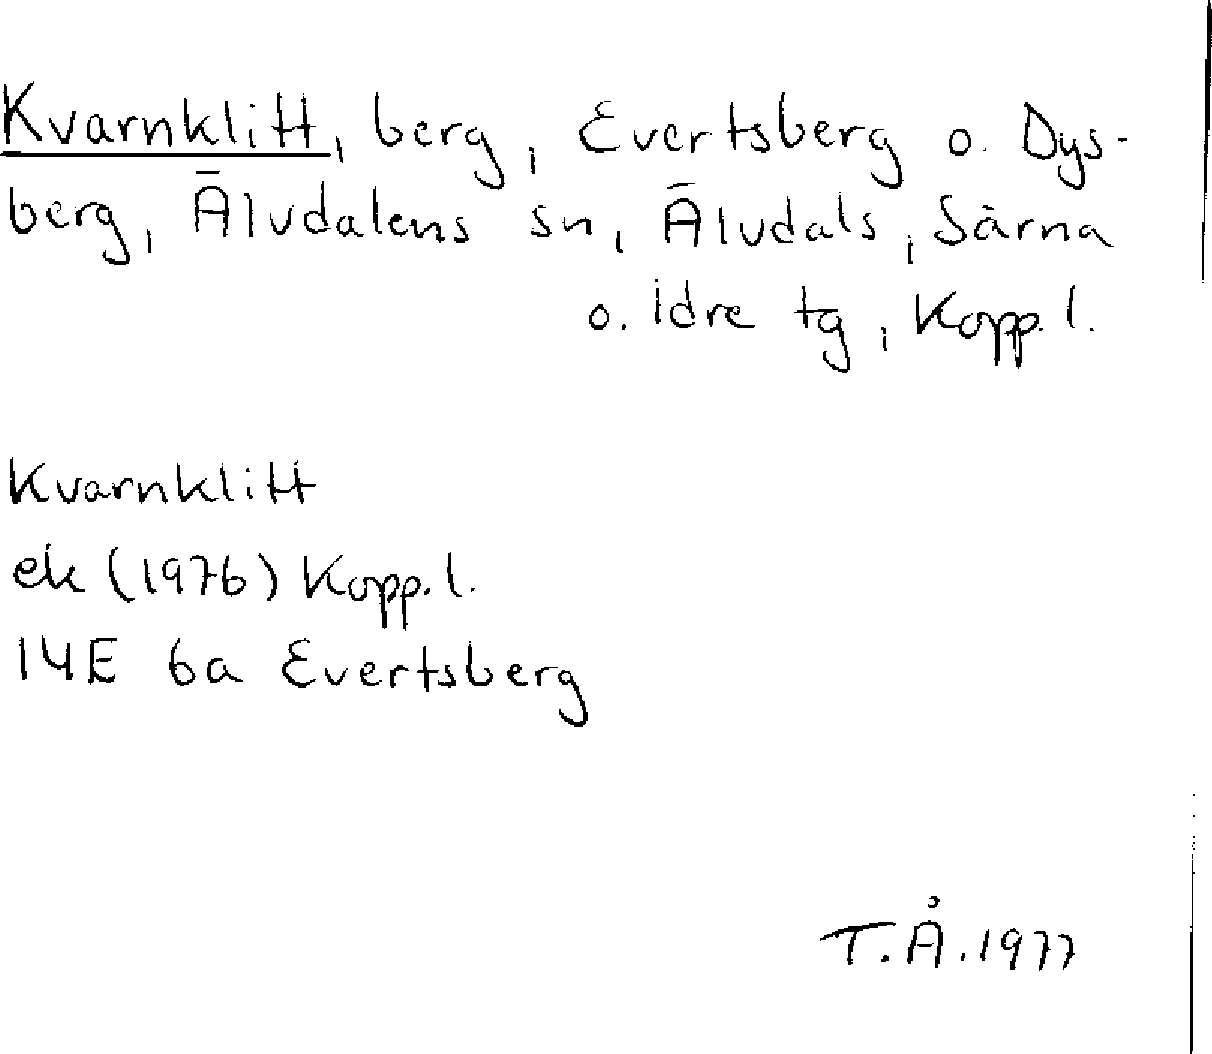 Kvarnklitt, berg, Evertsberg o. Dys-
berg, Älvdalens sn, Älvdals, Särna
o. Idre tg, Kopp. l.
Kvarnklitt
ek (1976) Kopp. l.
14E 6a Evertsberg
T.Å. 1977